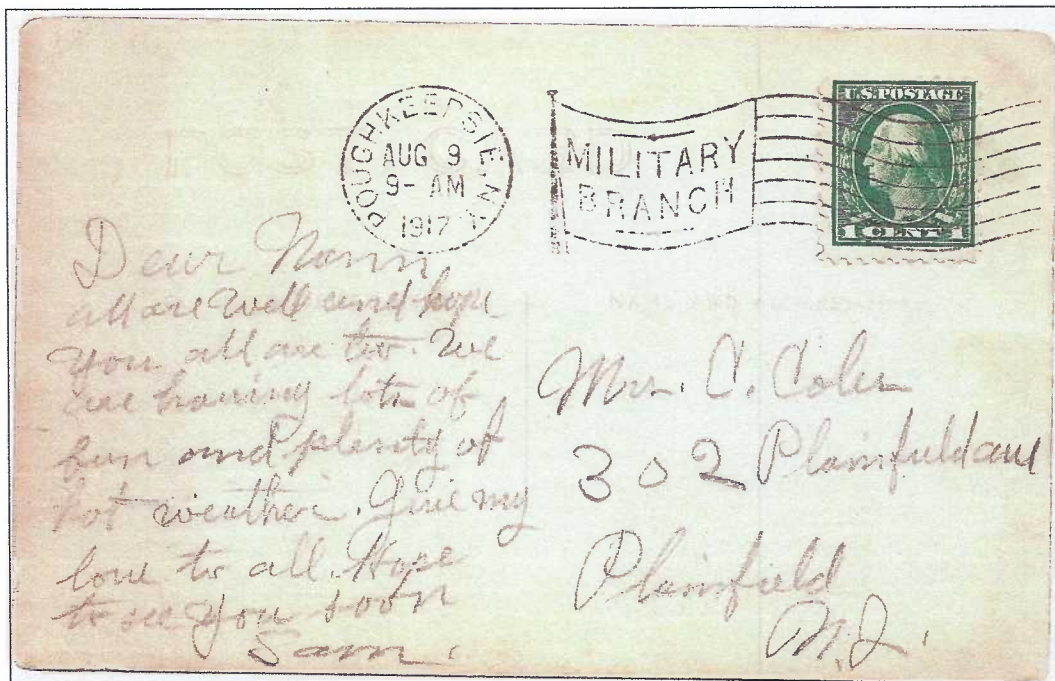 POUGHKEEPSIE, N.Y.
AUG 9
9- AM
1917
MILITARY
BRANCH
U.S. POSTAGE
1 CENT 1
Dear
all are well and hope
you all are too. We
are having lots of
fun and plenty of
hot weather. Give my
love to all. Hope
to see you soon
Sam.
Mrs. C. Coles
302 Plainfield ave
Plainfield
N.J.